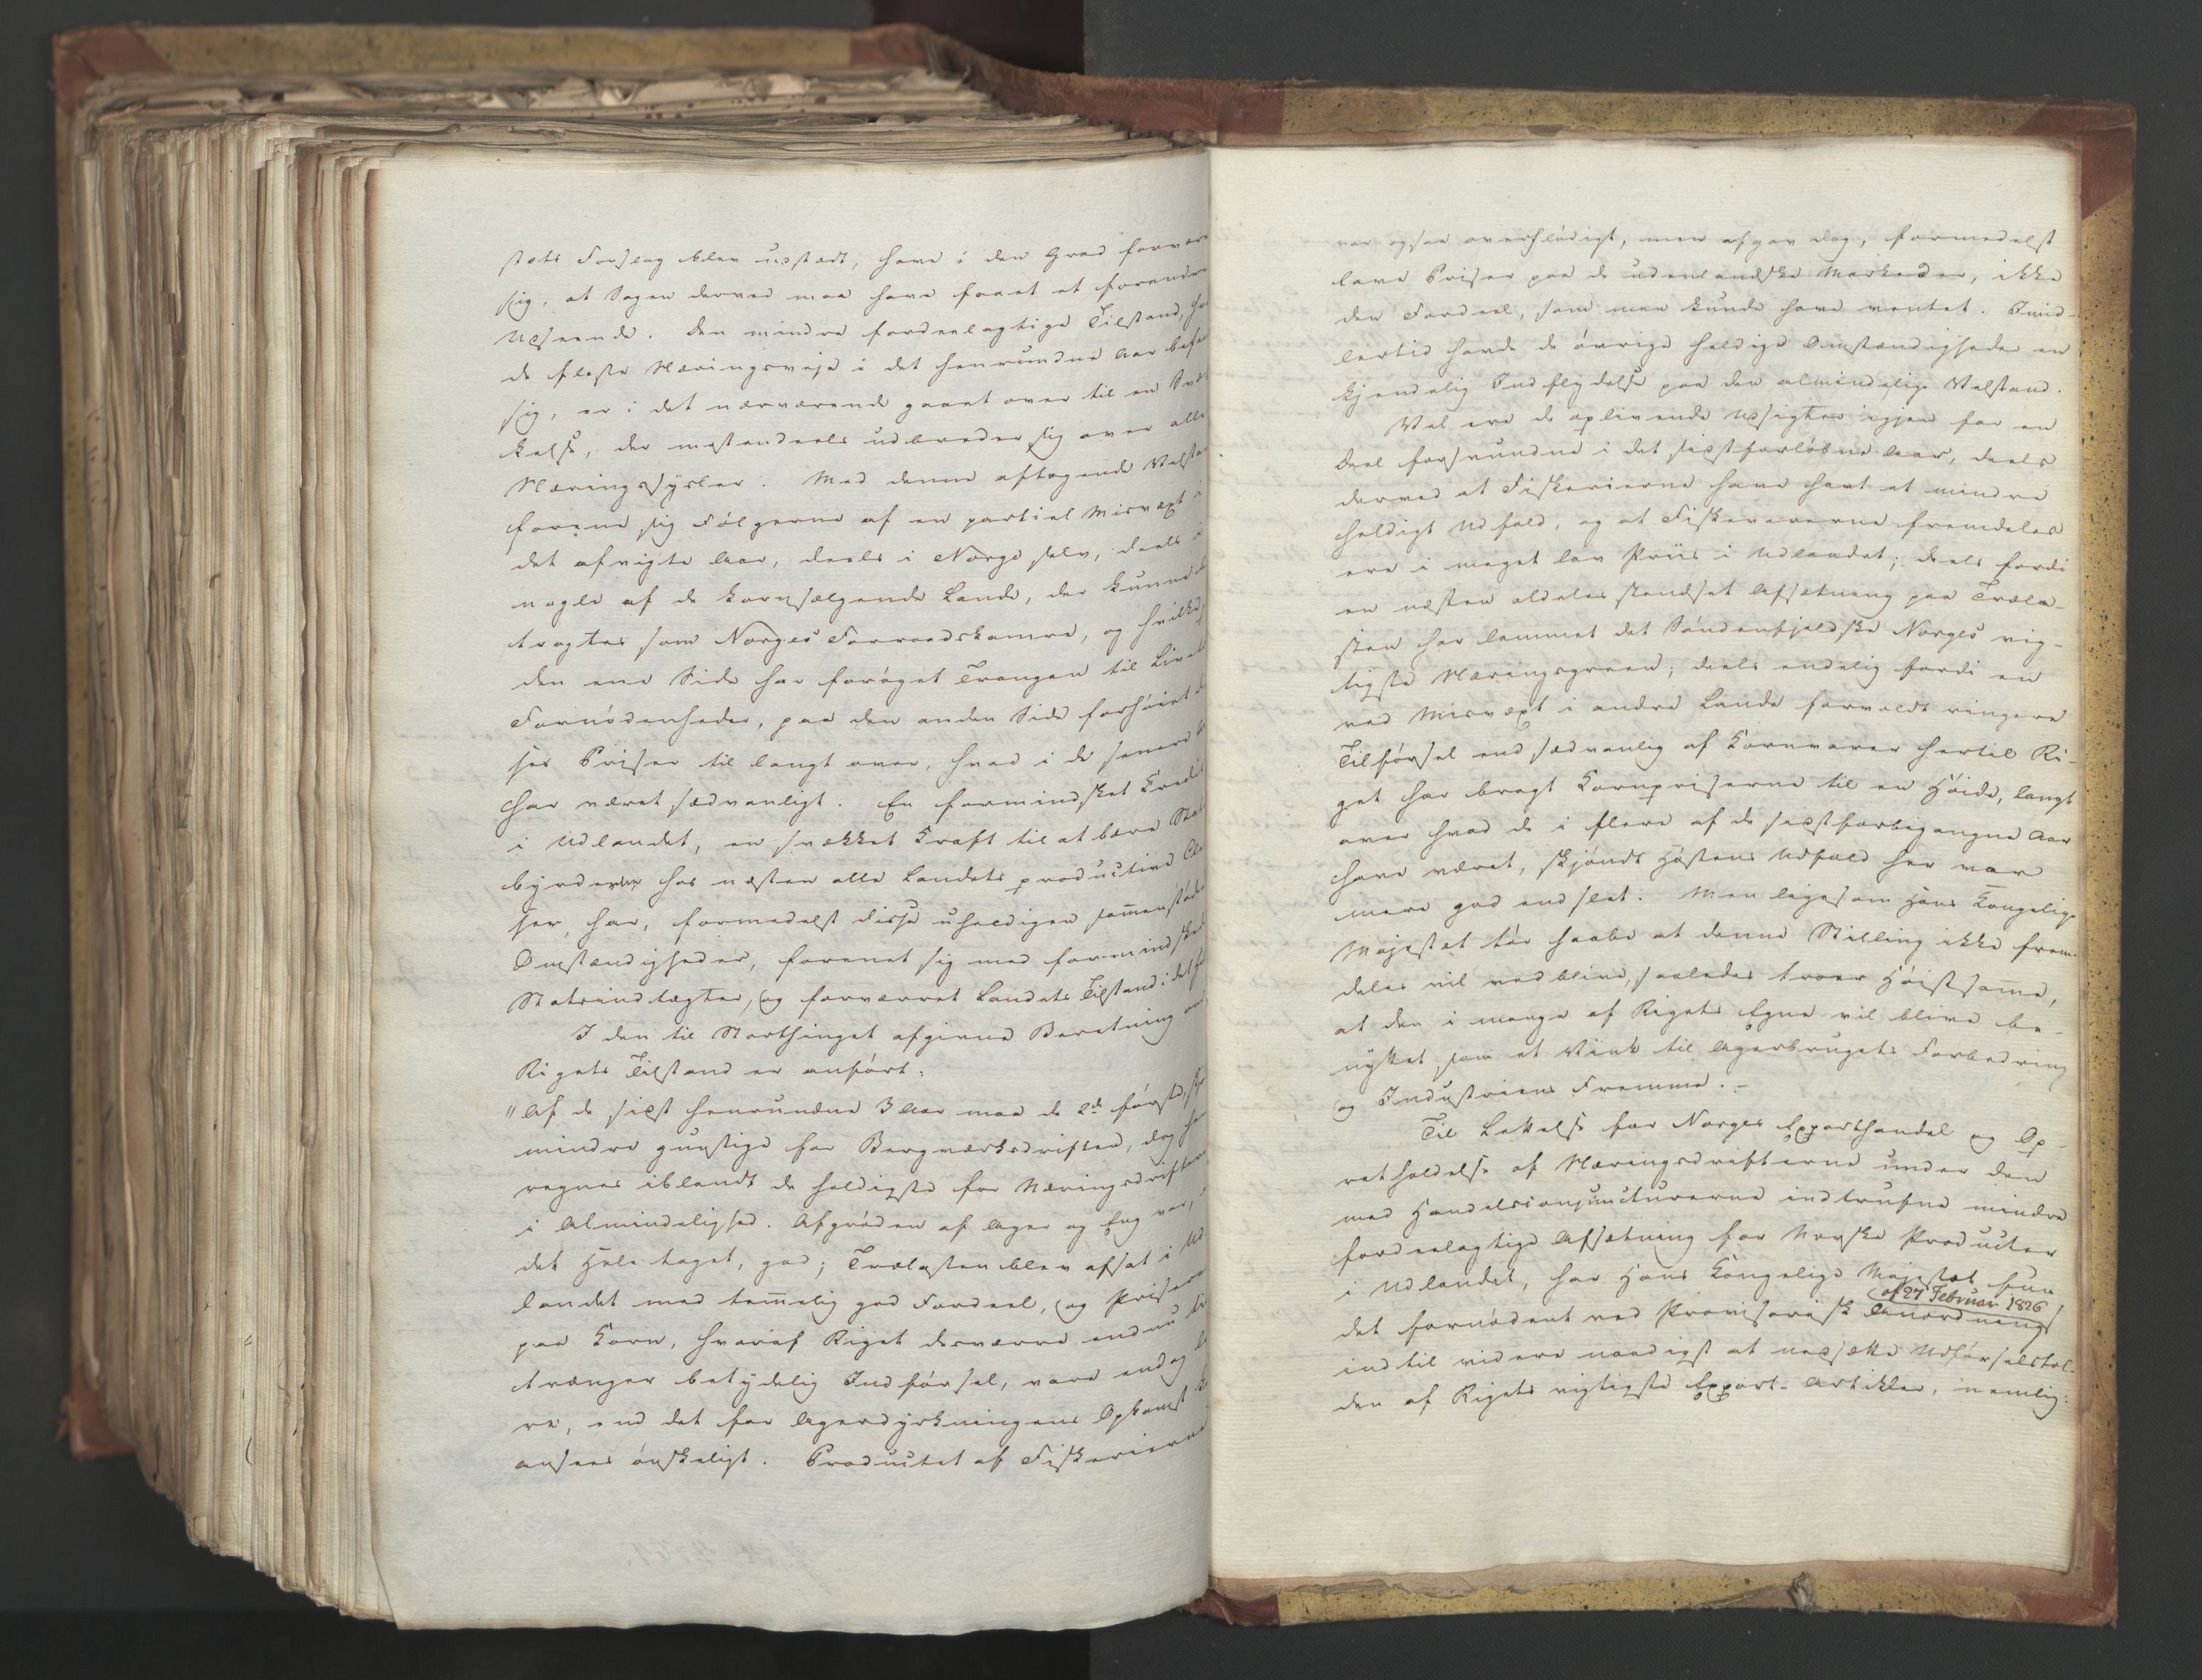 stets Forslag blev udstædt, have i den Grad forværr
sig, at Sagen derved maa have faaet et forandre
Udseende. Den mindre fordeelagtige Tilstand, hvo
de fleste Næringsveje i det henrundne Aar befan
sig, er i det nærværende gaaet over til en Svæk
kelse, der mestendeels udbreder sig over alle
Næringssysler. Med denne aftagende Velstan
forene sig Følgerne af en partiel Misvæxt i
det afvigte Aar, deels i Norge selv, deels i
nogle af de kornsælgende Lande, der kunne
tragtes som Norges Forraadskamre, og hvilke,
den ene Side har forøget Trangen til Livets
Fornødenheder, paa den anden Side forhøiet
ses Priser til langt over, hvad i de senere
har været sædvanligt. En formindsket Credit
i Udlandet, en svækket Kraft til at bære Stats
byrderne hos næsten alle Landets productive Clas
ser, har, formedelst disse uheldigen sam̄enstødende
Omstændigheder, forenet sig med formindskede
Statsindtægter, og forværret Landets Tilstand i det
I den til Storthinget afgivne Beretning om
Rigets Tilstand er anført:
"Af de sidst henrundne 3 Aar maa de 2de første, skjø
mindre gunstige for Bergværksdriften, dog hen
regnes iblandt de heldigste for Næringsdriften
i Almindelighed. Afgrøden af Ager og Eng var, i
det Hele taget, god; Trælasten blev afsat i Ud-
landet med tem̄elig god Fordeel, og Priserne
paa Korn, hvoraf Riget desværre endnu til
trænger betydelig Indførsel, vare endog la
re, end det for Agerdyrkningens Opkomst
ansees ønskeligt. Productet af Fiskerierne
var ogsaa overflødigt, men afgav dog, formedelst
lave Priser paa de udenlandske Markeder, ikke
den Fordeel, som man kunde have ventet. Imid-
lertid havde de øvrige heldige Omstændigheder en
kjendelig Indflydelse paa den almindelige Velstand.
Vel ere de oplivende Udsigter igjen for en
Deel forsvundne i det sidstforløbne Aar, deels
derved at Fiskerierne have havt et mindre
heldigt Udfald, og at Fiskevarerne fremdeles
ere i meget lav Priis i Udlandet; deels fordi
en næsten aldeles standset Afsætning paa Træla-
sten har lammet det Søndenfjeldske Norges vig-
tigste Næringsgreen; deels endelig fordi en
ved Misvæxt i andre Lande forvoldt ringere
Tilførsel end sædvanlig af Kornvarer hertil Ri-
get har bragt Kornpriserne til en Høide, langt
over hvad de i flere af de sidstforbigangne Aar
have været, skjøndt Høstens Udfald her var
mere god end slet. Men ligesom Hans Kongelige
Majestæt tør haabe at denne Stilling ikke frem-
deles vil vedblive, saaledes troer Høistsam̄e,
at den i mange af Rigets Egne vil blive be-
nyttet som et Vink til Agerbrugets Forbedring
og Industriens Fremme.-
Til Lettelse for Norges Exporthandel og Op-
retholdelse af Næringsdrifterne under den
med Handelsconjuncturerne indtrufne mindre
fordeelagtige Afsætning for Norske Producter
i Udlandet, har Hans Kongelige Majestæt fun
af 27 Februar 1826
det fornødent ved Provisorisk Anordning
indtil videre naadigst at nedsætte Udførselstol-
den af Rigets vigtigste Export-Artikler, nemlig: